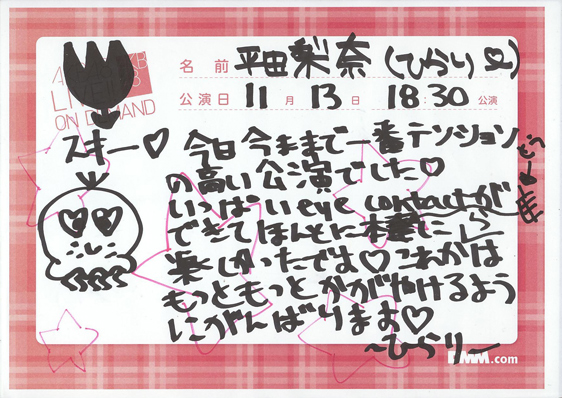 AKB48
LIVE!!
ON DEMAND
名前 平田梨奈（ひらりー♡）
公演日 11月13日 18:30公演
スキー♡ 今日今まで一番テンション
の高い公演でした♡
いっぱいeye contactが
できてほんとに
楽しかったです♡これからは
もっともっとかがやけるよう
にがんばります♡
〜ひらりー
DMM.com